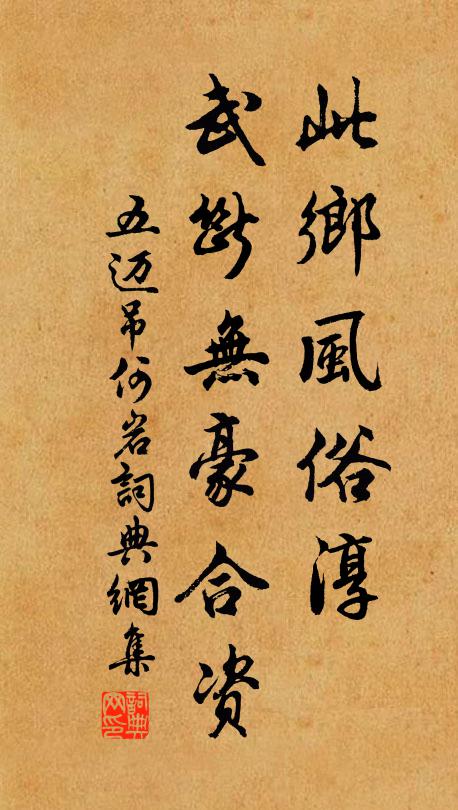 此鄉風俗淳
武斷無豪合資
五迈吊何岩詞典網集
詞典網印